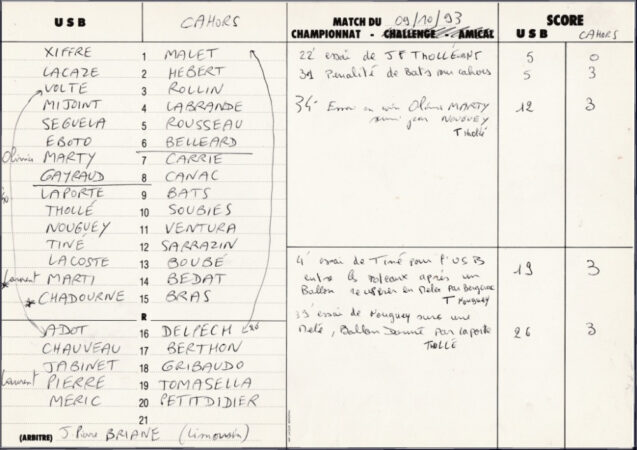 USB CAHORS
XIFFRE 1 MALET
LACAZE 2 HEBERT
VOLTE 3 ROLLIN
MIJOINT 4 LABRANDE
SEGUELA 5 ROUSSEAU
EBOTO 6 BELLEARD
Olivier MARTY 7 CARRIE
GAYRAUD 8 CANAC
LAPORTE 9 BATS
THOLLÉ 10 SOUBIES
NOUGUEY 11 VENTURA
TINÉ 12 SARRAZIN
LACOSTE 13 BOUBÉ
Laurent MARTI 14 BEDAT
* CHADOURNE 15 BRAS
R
ADOT 16 DELPECH
CHAUVEAU 17 BERTHON
JABINET 18 GRIBAUDO
Laurent PIERRE 19 TOMASELLA
MERIC 20 PETITDIDIER
21
(ARBITRE) J Pierre BRIANE (Limousin)
MATCH DU 09/10/93 SCORE
CHAMPIONNAT - CHALLENGE - AMICAL USB CAHORS
22' essai de 5 0
Penalité de Bats 5 3
34' Essai Olivier MARTY 12 3
NOUGUEY
T Thollé
4' essai de Tiné pour l'USB 19 3
entre les poteaux après un
Ballon
T Nouguey
essai de Nouguey
Ballon Donné par Laporte 26 3
THOLLÉ